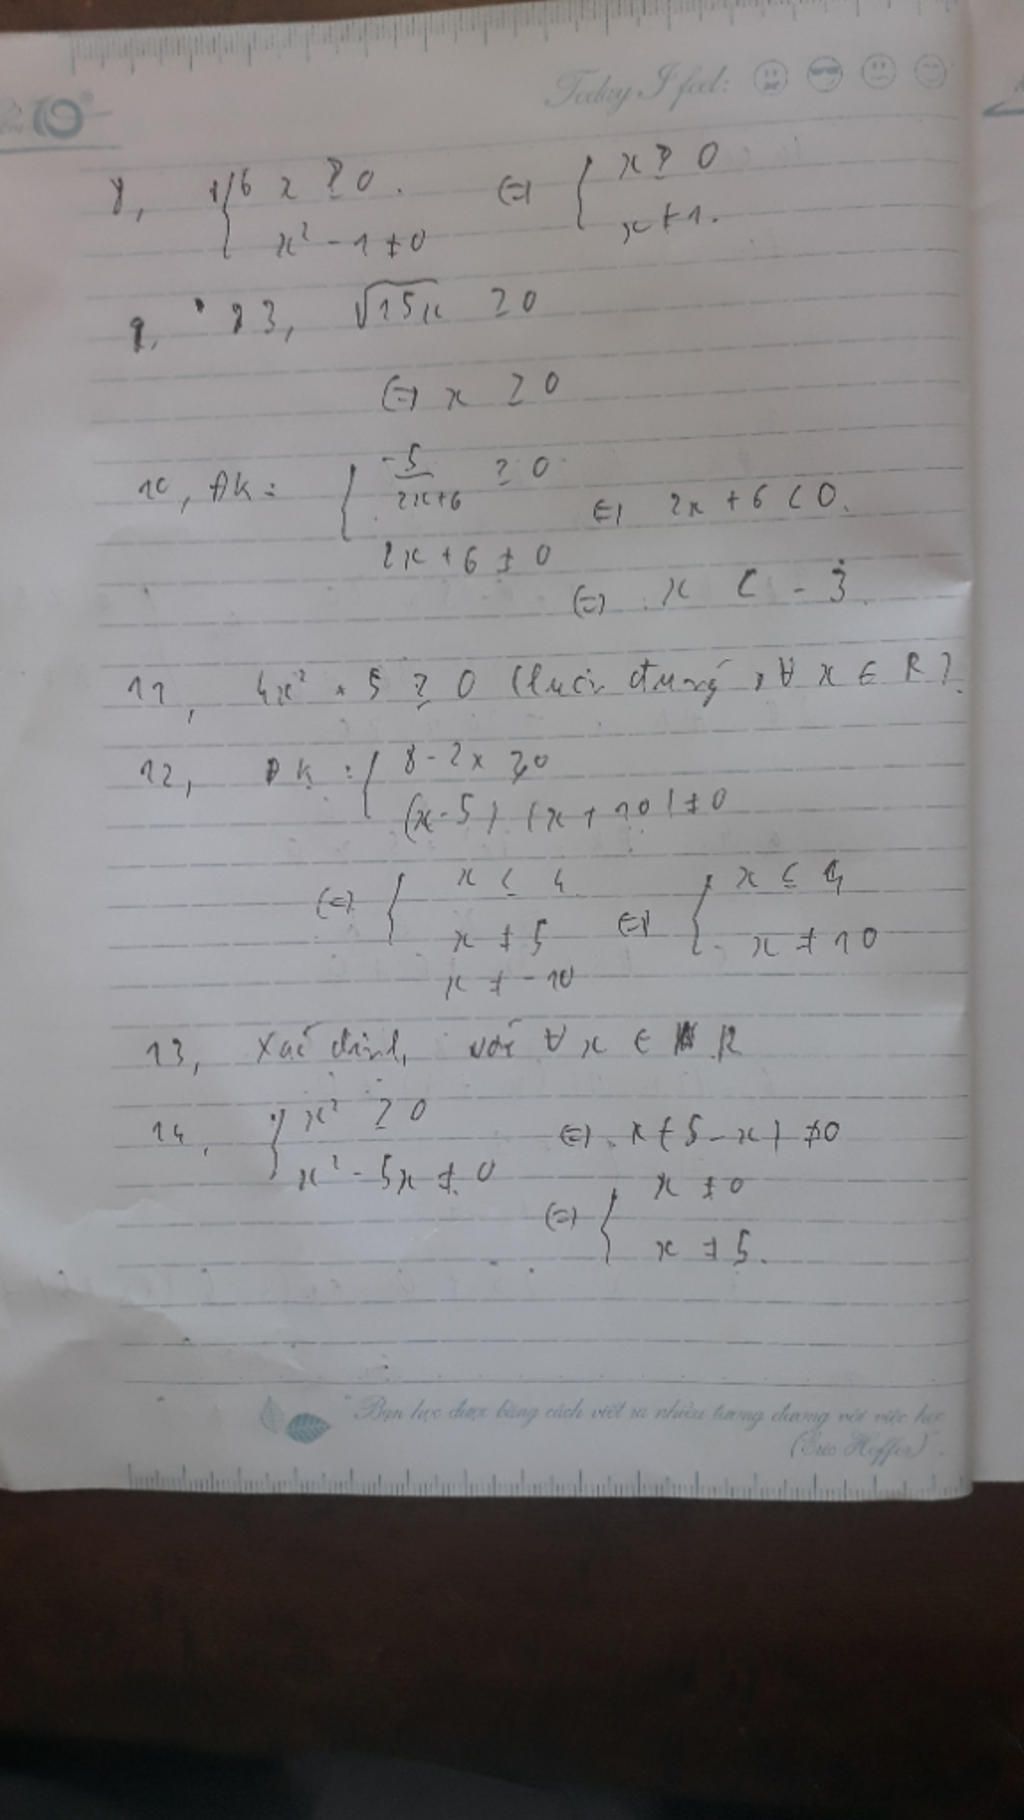 Today I feel:
8, { 6x ≥ 0. <=> { x ≥ 0
x² - 1 ≠ 0 x ≠ 1.
9, √15x ≥ 0
<=> x ≥ 0
10, ĐK: { -5/2x+6 ≥ 0
<=> 2x + 6 < 0.
2x + 6 ≠ 0
<=> x < -3
11, 4x² + 5 ≥ 0 (luôn đúng, ∀ x ∈ R).
12, ĐK: { 8 - 2x ≥ 0
(x - 5) (x + 10) ≠ 0
<=> { x ≤ 4 <=> { x ≤ 4
x ≠ 5 x ≠ 10
x ≠ -10
13, Xác định với ∀ x ∈ R
14, { x² ≥ 0 <=> x(5 - x) ≠ 0
x² - 5x ≠ 0
x ≠ 0
<=> { x ≠ 5.
"Bạn học được bằng cách viết ra nhiều tương đương với việc học
(Eric Hoffer)".